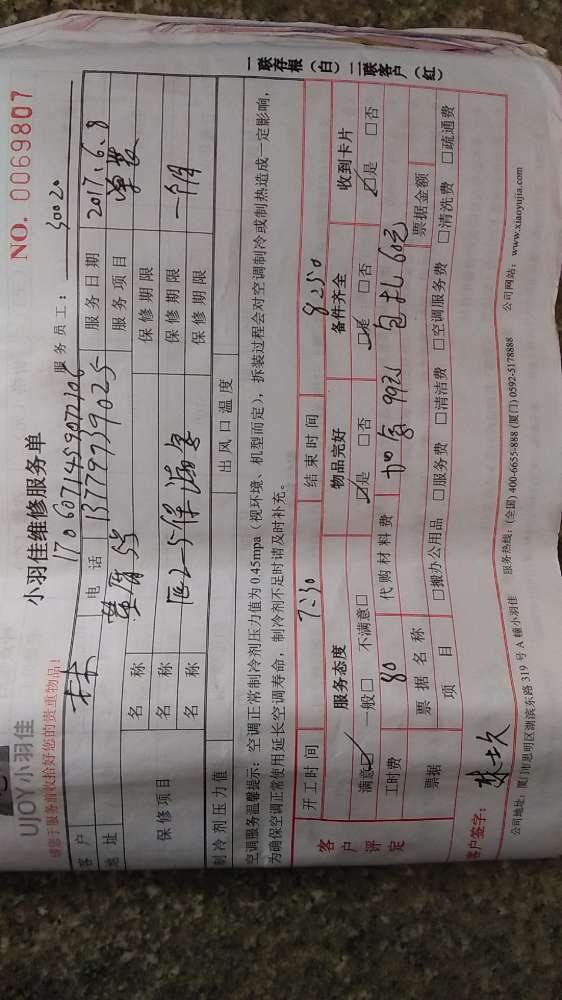 UJOY小羽佳
小羽佳维修服务单
NO. 0069807
请您于服务前收拾好您的贵重物品！
1706071459072106
服务员工：
客户 林 电话 13779939025 服务日期 2017.6.8
地址 服务项目
保修项目 名称 保修期限
名称 保修期限 一个月
名称 保修期限
制冷剂压力值 出风口温度
空调服务温馨提示：空调正常制冷剂压力值为0.45mpa（视环境、机型而定），拆装过程会对空调制冷或制热造成一定影响，
为确保空调正常使用延长空调寿命，制冷剂不足时请及时补充。
客户评定
开工时间 7:30 结束时间 8:50
服务态度 物品完好 备件齐全 收到卡片
满意☑ 一般□ 不满意□ ☑是 □否 ☑是 □否 ☑是 □否
工时费 80 代购材料费 包扎60元
票据 票据名称 票据金额
项目 □搬办公用品 □服务费 □清洁费 □空调服务费 □清洗费 □疏通费
客户签字：
公司地址：厦门市思明区湖滨东路319号A幢小羽佳 服务热线：(全国) 400-6655-888 (厦门) 0592-5178888 公司网站：www.xiaoyujia.com
一联存根（白）二联客户（红）